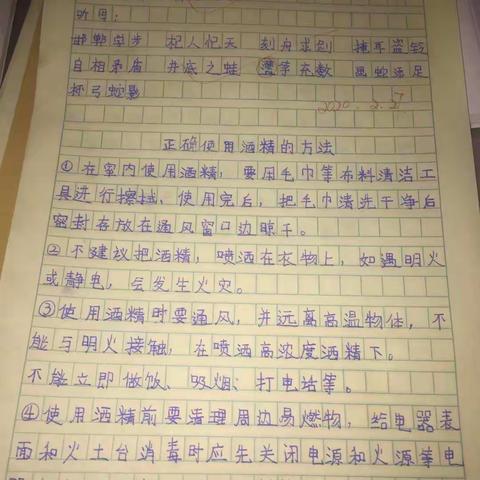 听写:
邯郸学步 杞人忧天 刻舟求剑 掩耳盗铃
自相矛盾 井底之蛙 滥竽充数 画蛇添足
杯弓蛇影
2020.2.27
正确使用酒精的方法
①在室内使用酒精，要用毛巾等布料清洁工
具进行擦拭、使用完后，把毛巾清洗干净后
密封存放在通风窗口边晾干。
②不建议把酒精，喷洒在衣物上，如遇明火
或静电，会发生火灾。
③使用酒精时要通风，并远离高温物体，不
能与明火接触，在喷洒高浓度酒精下。
不能立即做饭、吸烟、打电话等。
④使用酒精前要清理周边易燃物，给电器表
面和火土台消毒时应先关闭电源和火源等电